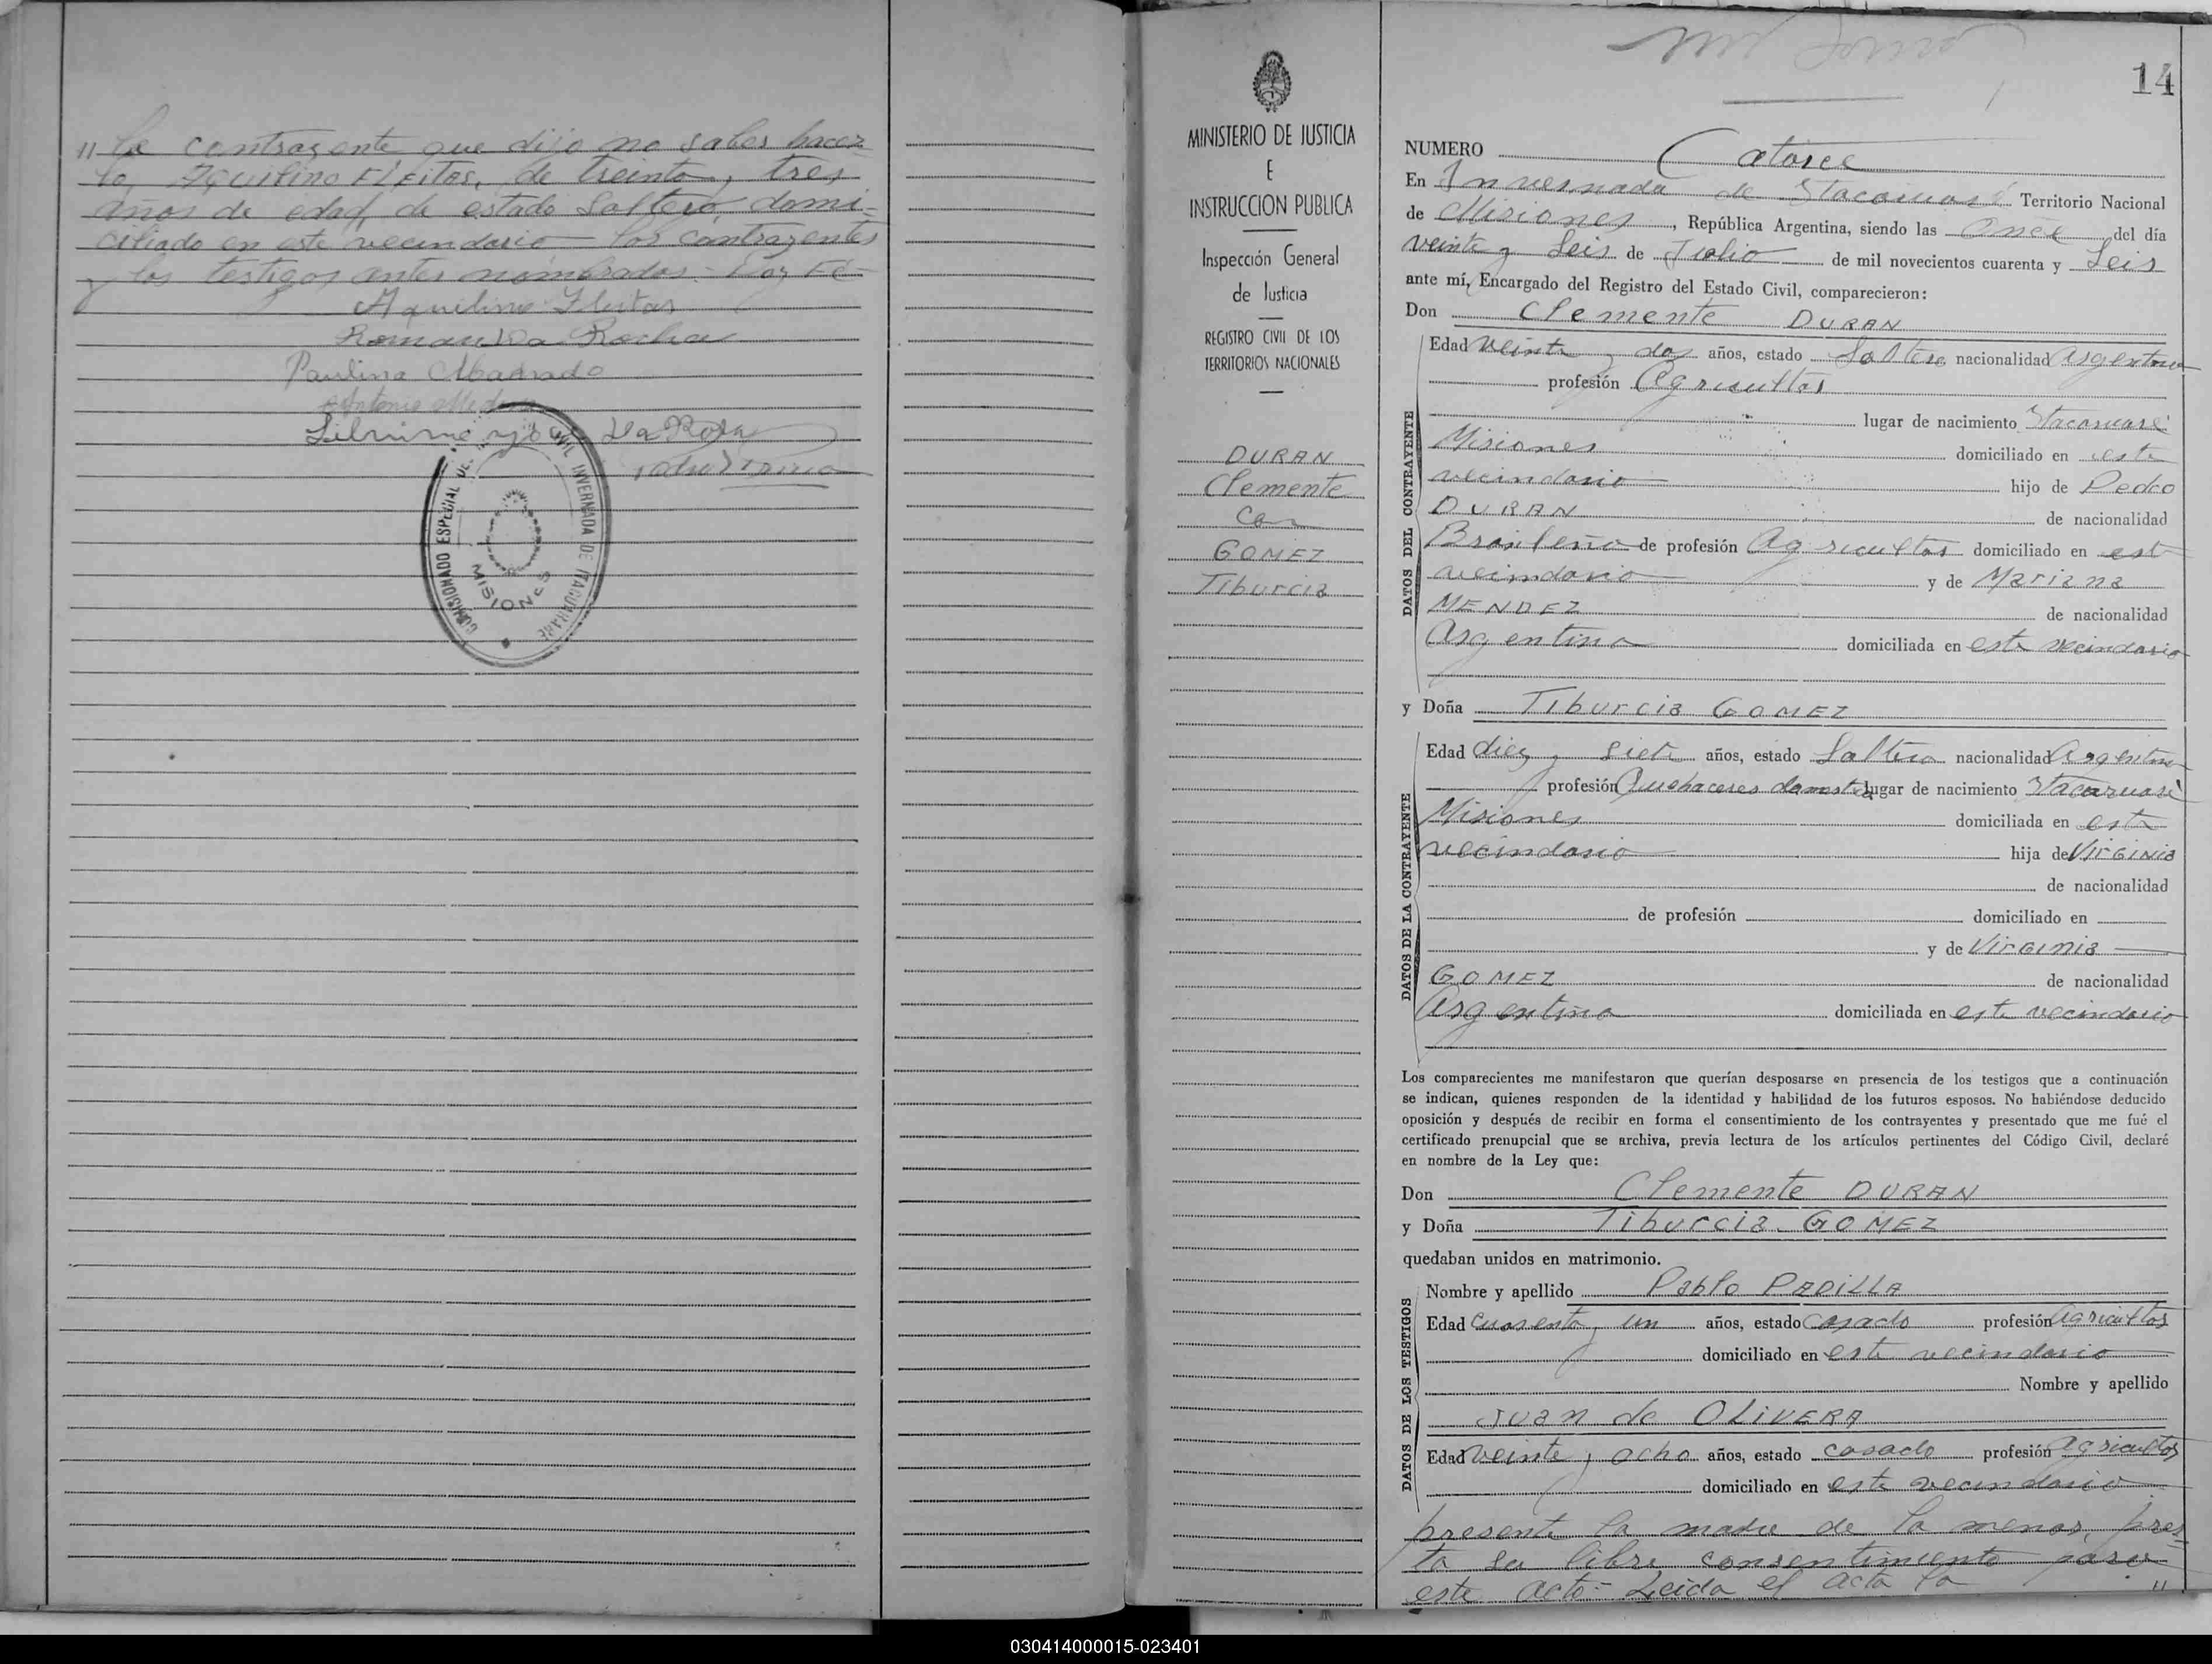 " la contrayente que dijo no saber hacer
lo, Aquilino FLEITAS, de treinta y tres
años de edad, de estado soltero, domi-
ciliado en este vecindario - los contrayentes
y los testigos antes nombrados - Doy Fé -
Aquilino Fleitas
Roman Da Rocha
Paulina Machado
Antonio Medina
Da Rosa
COMISIONADO ESPECIAL DEL CIVIL INVERNADA DE ITACUARARE
MISIONES
MINISTERIO DE JUSTICIA
E
INSTRUCCION PUBLICA
Inspección General
de Justicia
REGISTRO CIVIL DE LOS
TERRITORIOS NACIONALES
DURAN
Clemente
con
GOMEZ
Tiburcia
14
NUMERO Catorce
En Invernada de Itacaruaré Territorio Nacional
de Misiones, República Argentina, siendo las Once del día
veinte y Seis de Julio de mil novecientos cuarenta y Seis
ante mí, Encargado del Registro del Estado Civil, comparecieron:
Don Clemente DURAN
Edad veinte y dos años, estado Soltero nacionalidad Argentino
profesión Agricultor
lugar de nacimiento Itacaruaré
Misiones domiciliado en este
vecindario hijo de Pedro
DURAN de nacionalidad
Brasileño de profesión Agricultor domiciliado en este
vecindario y de Mariana
MENDEZ de nacionalidad
Argentina domiciliada en este vecindario
y Doña Tiburcia GOMEZ
Edad diez y siete años, estado Soltera nacionalidad Argentina
profesión Quehaceres domest. lugar de nacimiento Itacaruaré
Misiones domiciliada en este
vecindario hija de Virginia
de nacionalidad
de profesión domiciliado en
y de Virginia
GOMEZ de nacionalidad
Argentina domiciliada en este vecindario
DATOS DEL CONTRAYENTE
DATOS DE LA CONTRAYENTE
Los comparecientes me manifestaron que querían desposarse en presencia de los testigos que a continuación
se indican, quienes responden de la identidad y habilidad de los futuros esposos. No habiéndose deducido
oposición y después de recibir en forma el consentimiento de los contrayentes y presentado que me fué el
certificado prenupcial que se archiva, previa lectura de los artículos pertinentes del Código Civil, declaré
en nombre de la Ley que:
Don Clemente DURAN
y Doña Tiburcia GOMEZ
quedaban unidos en matrimonio.
DATOS DE LOS TESTIGOS
Nombre y apellido Pablo PADILLA
Edad cuarenta y un años, estado casado profesión Agricultor
domiciliado en este vecindario
Nombre y apellido
Juan de OLIVERA
Edad veinte y ocho años, estado casado profesión Agricultor
domiciliado en este vecindario
presente la madre de la menor, pres-
ta su libre consentimiento para
este acto - Leída el acta la "
030414000015-023401